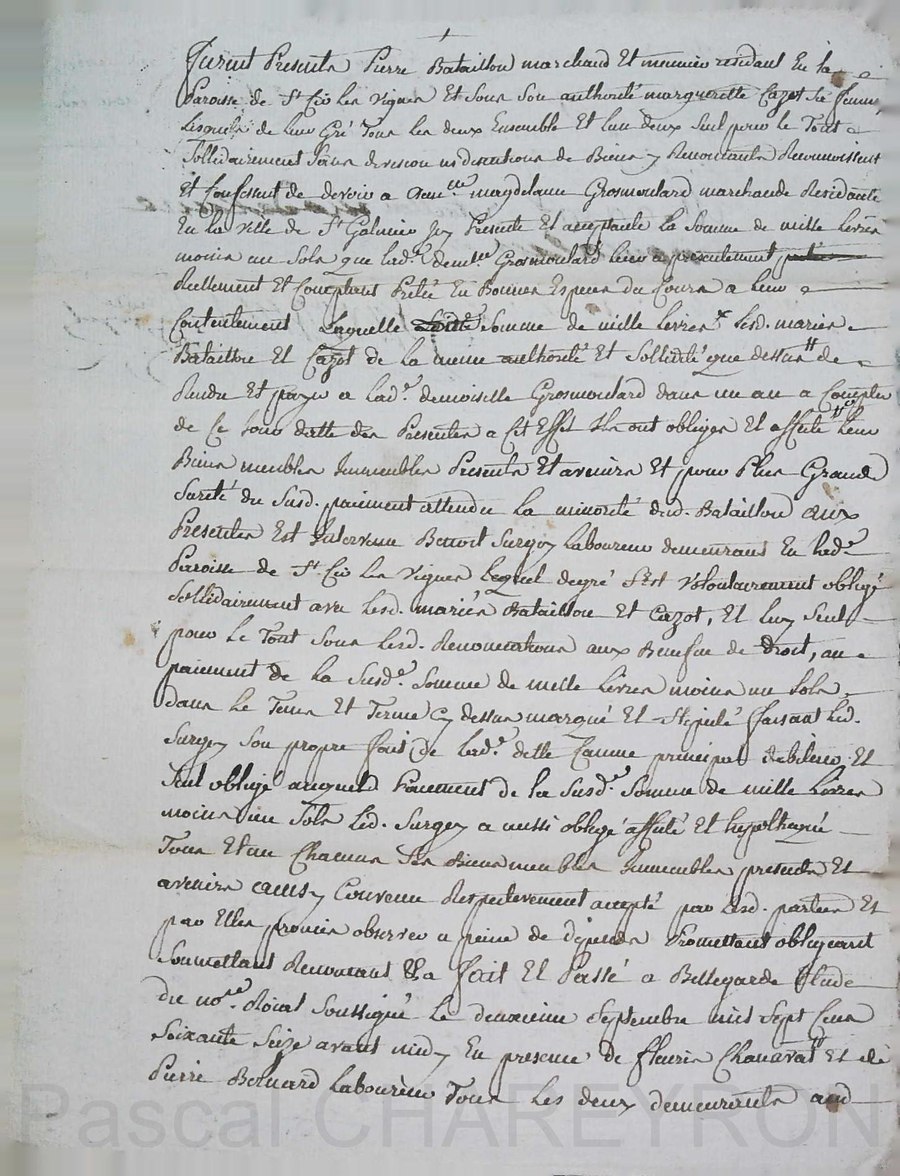 Furent Presents Pierre Bataillon marchand Et meunier residant En la
Paroisse de St Cir Les Vignes Et Sous Son authorité margueritte Cazot Sa femme
Lesquels de leur Gré Tous les deux Ensemble Et l'un deux Seul pour le Tout
Sollidairement Sans division ni discutions de Biens y Renonceants Reconnoissent
Et Confessent de devoir a demlle magdelaine Grosmoulard marchande Residante
En la Ville de St Galmier Icy Presente Et acceptante la Somme de mille Livres
moins un Sols que lad.e demlle Grosmoulard leur a presentement
Reellement Et Comptant Preté En Bonnes Especes du Cours a leur
Contentement Laquelle Somme de mille Livres Lesd. mariés
Bataillon Et Cazot de la meme authorité Et Sollidité que dessus de
Rendre Et payer a lad.e demoiselle Grosmoulard dans un an a Compter
de Ce Jour datte des Presentes a Cet Effet Ils ont obligés Et affecté leurs
Biens meubles Immeubles Presents Et avenirs Et pour Plus Grande
Sureté du Susd. paiment attendu la minorité dud. Bataillon aux
Presentes Est Intervenu Benoit Surgey Laboureur demeurans En lad.e
Paroisse de St Cir Les Vignes Lequel degré S'est Volontairement obligé
Sollidairement avec Lesd. mariés Bataillon Et Cazot, Et luy Seul
pour le Tout Sous Lesd. Renonciations aux Benefice de droit, au
paiement de la Susd.e Somme de mille Livres moins un Sols
dans le Tems Et Terme cy dessus marqué Et Stipulé faisant Led.
Surgey Son propre fait de lad.e dette Comme principal debiteur Et
Seul obligé auquel Paiement de la Susd.e Somme de mille Livres
moins un Sols Led. Surgey a aussi obligé affecté Et hypothequé
Tous Et un Chacuns Ses Biens meubles Immeubles presents Et
avenirs ainsy Convenu Respectivement accepté par Lesd. parties Et
par Elles promis observer a peine de dépends Promettant obligeant
Soumettant Renonceant &a fait Et Passé a Bellegarde Etude
du nore Roial Soussigné Le deuxieme Septembre mil Sept Cens
Soixante Seize avant midy En presence de fleuris Chanavat Et de
Pierre Bernard Laboureur Tous Les deux demeurants aud
Pascal CHAREYRON